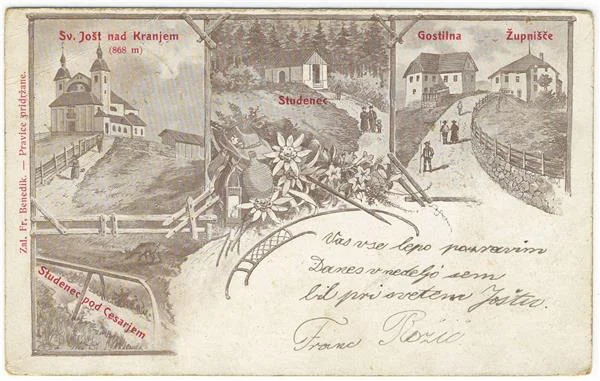 Sv. Jošt nad Kranjem
(868 m)
Studenec
Gostilna
Župnišče
Zal. Fr. Benedik. — Pravice pridržane.
Studenec pod Cesarjem
Vas vse lepo pozravim
Danes v nedeljo sem
bil pri svetem Joštu.
Franc Rožič